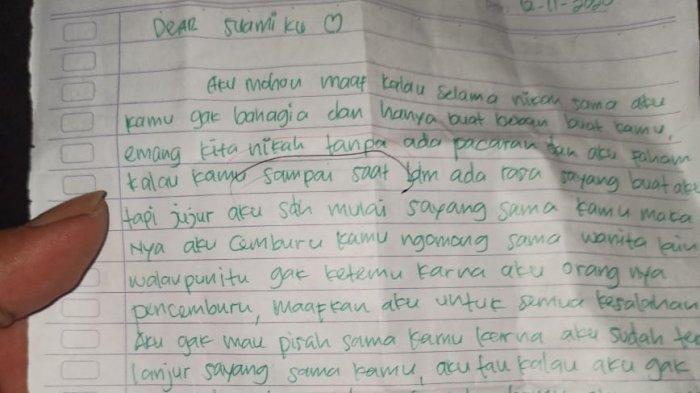 12-11-2020
DEAR SUAMI KU ♡
Aku mohon maaf kalau selama nikah sama aku
kamu gak bahagia dan hanya buat beban buat kamu,
emang kita nikah tanpa ada pacaran dan aku faham
kalau kamu sampai saat ada rasa sayang buat aku
tapi jujur aku sdh mulai sayang sama kamu maka
Nya aku cemburu kamu ngomong sama wanita lain
walaupun itu gak ketemu karna aku orang nya
pencemburu, maafkan aku untuk semua kesalahan
Aku gak mau pisah sama kamu kerna aku sudah ter
lanjur sayang sama kamu, aku tau kalau aku gak